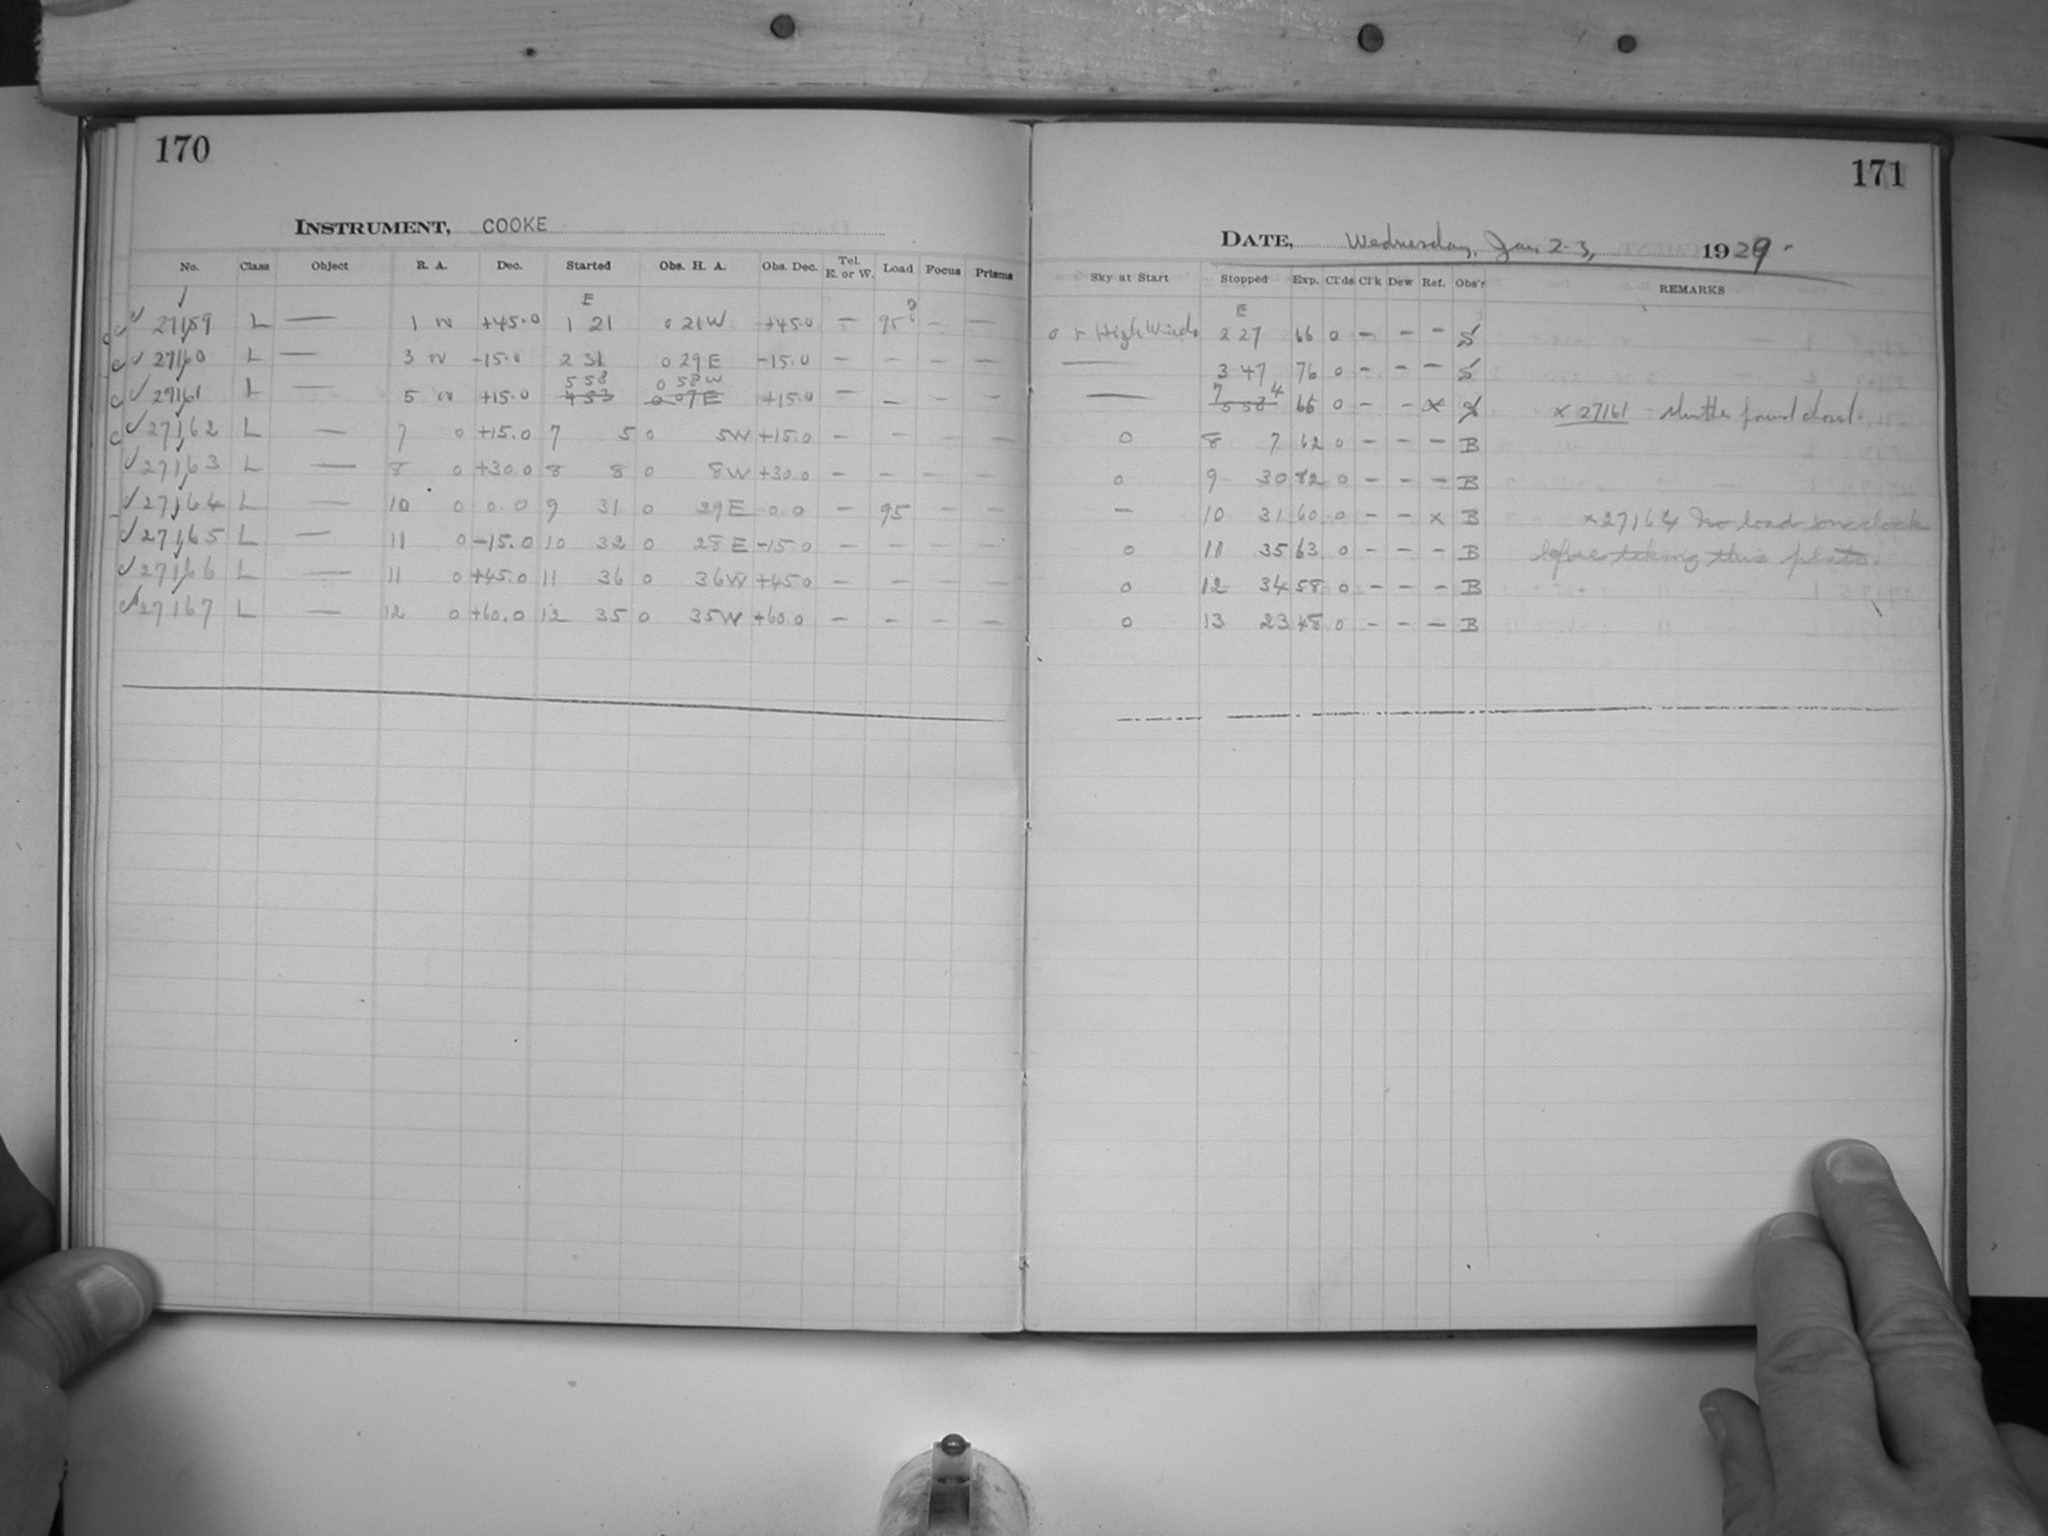 170
INSTRUMENT, COOKE
No. Class Object R. A. Dec. Started Obs. H. A. Obs. Dec. Tel. E. or W. Load Focus Prisms
E
27159 L — 1 +45.0 1 21 0 21W +45.0 — 95 — —
27160 L — 3 -15.0 2 31 0 29E -15.0 — — — —
558 0 58W
27161 L — 5 +15.0 453 0 07E +15.0 — — — —
27162 L — 7 0 +15.0 7 5 0 5W +15.0 — — — —
27163 L — 8 0 +30.0 8 8 0 8W +30.0 — — — —
27164 L — 10 0 0.0 9 31 0 29E 0.0 — 95 — —
27165 L — 11 0 -15.0 10 32 0 28E -15.0 — — — —
27166 L — 11 0 +45.0 11 36 0 36W +45.0 — — — —
27167 L — 12 0 +60.0 12 35 0 35W +60.0 — — — —
171
DATE, Wednesday, Jan. 2-3, 1929.
Sky at Start Stopped Exp. Cl'ds Cl'k Dew Ref. Obs'r REMARKS
E
High Winds 2 27 66 0 — — — S
— 3 47 76 0 — — — S
7 4
— 558 66 0 — — x x 27161 - Shutter found closed.
0 8 7 62 0 — — — B
0 9 30 82 0 — — — B
— 10 31 60 0 — — x B x27164 No load on clock
0 11 35 63 0 — — — B before taking this plate.
0 12 34 58 0 — — — B
0 13 23 48 0 — — — B